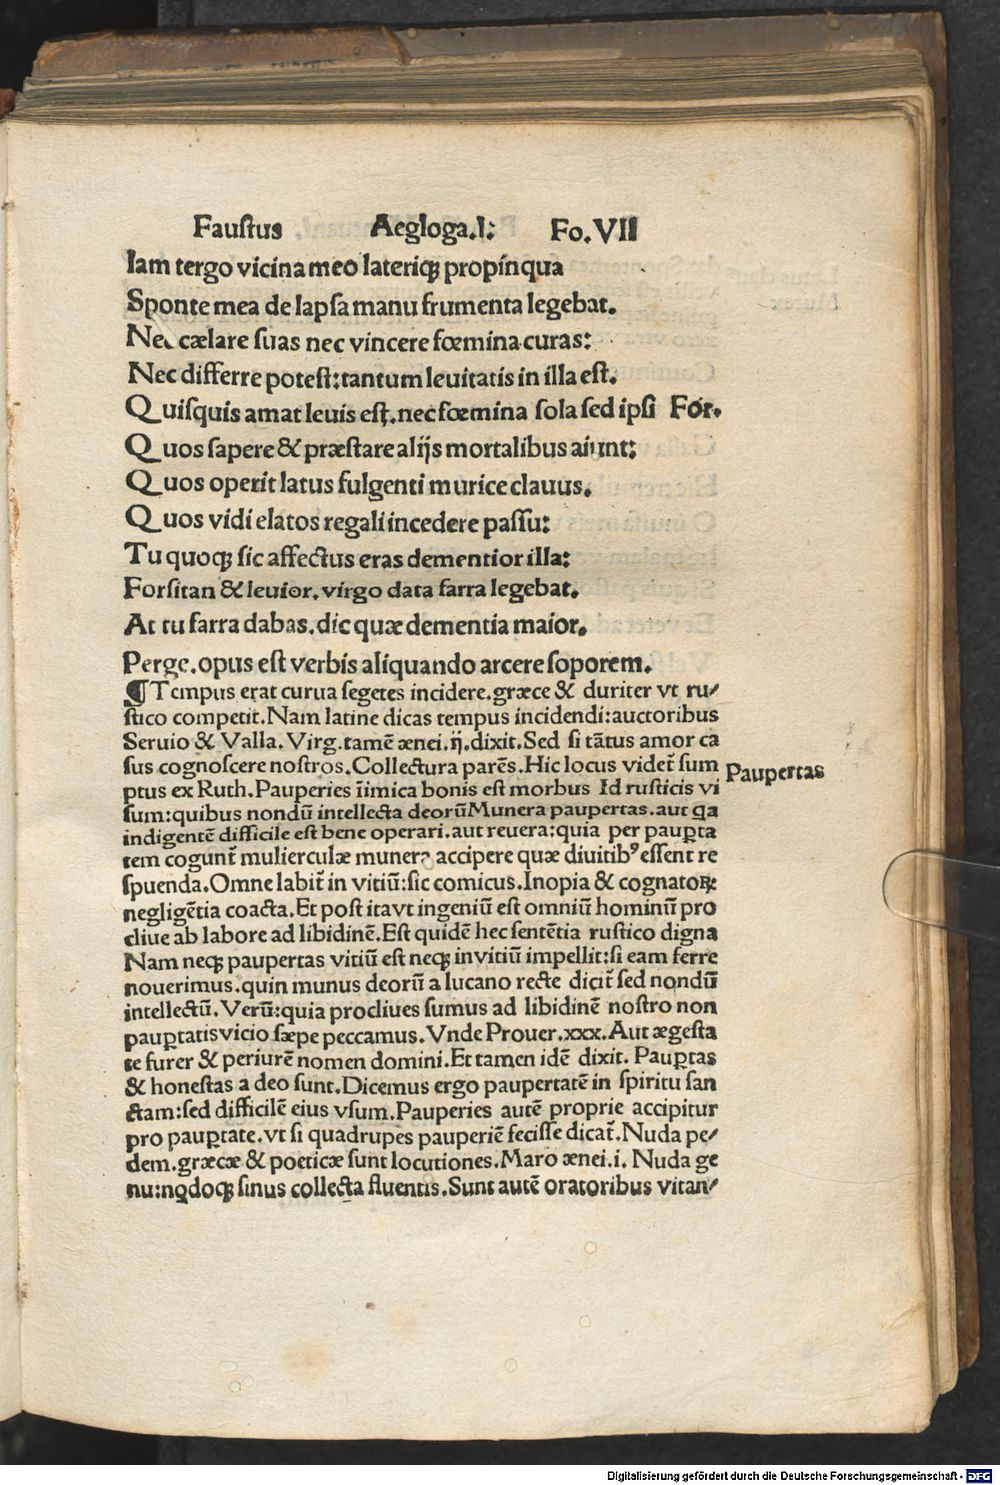 Faustus Aegloga.I: Fo.VII
Iam tergo vicina meo lateriqꝫ propinqua
Sponte mea de lapsa manu frumenta legebat.
Nec cælare suas nec vincere fœmina curas:
Nec differre potest: tantum leuitatis in illa est.
Quisquis amat leuis est. nec fœmina sola sed ipsi For.
Quos sapere & præstare alijs mortalibus aiunt:
Quos operit latus fulgenti murice clauus.
Quos vidi elatos regali incedere passu:
Tu quoqꝫ sic affectus eras dementior illa:
Forsitan & leuior. virgo data farra legebat.
At tu farra dabas. dic quæ dementia maior.
Perge. opus est verbis aliquando arcere soporem.
¶ Tempus erat curua segetes incidere. græce & duriter vt ru/
stico competit. Nam latine dicas tempus incidendi: auctoribus
Seruio & Valla. Virg. tamē ænei. ij. dixit. Sed si tātus amor ca
sus cognoscere nostros. Collectura parēs. Hic locus videt̄ sum
ptus ex Ruth. Pauperies īimica bonis est morbus Id rusticis vi
sum: quibus nondū intellecta deorū Munera paupertas. aut qa
indigentē difficile est bene operari. aut reuera: quia per paupta
tem cogunt̄ mulierculæ munera accipere quæ diuitibꝰ essent re
spuenda. Omne labit̄ in vitiū: sic comicus. Inopia & cognatoꝝ
negligētia coacta. Et post itavt ingeniū est omniū hominū pro
cliue ab labore ad libidinē. Est quidē hec sentētia rustico digna
Nam neqꝫ paupertas vitiū est neqꝫ in vitiū impellit: si eam ferre
nouerimus. quin munus deorū a lucano recte dicit̄ sed nondū
intellectū. Verū: quia procliues sumus ad libidinē nostro non
pauꝑtatis vicio sæpe peccamus. Vnde Prouer. xxx. Aut ægesta
te furer & periurē nomen domini. Et tamen idē dixit. Pauꝑtas
& honestas a deo sunt. Dicemus ergo paupertatē in spiritu san
ctam: sed difficilē eius vsum. Pauperies autē proprie accipitur
pro pauꝑtate. vt si quadrupes pauperiē fecisse dicat̄. Nuda pe/
dem. græcæ & poeticæ sunt locutiones. Maro ænei. i. Nuda ge
nu: nodoqꝫ sinus collecta fluentis. Sunt autē oratoribus vitan/
Paupertas
Digitalisierung gefördert durch die Deutsche Forschungsgemeinschaft - DFG